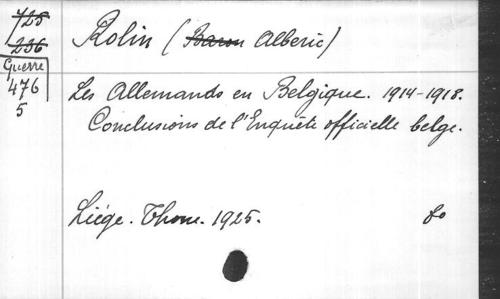 725
236
Guerre
476
5
Rolin (Baron Alberic)
Les Allemands en Belgique. 1914-1918.
Conclusions de l'Enquête officielle belge.
Liége. Thone. 1925. 8o